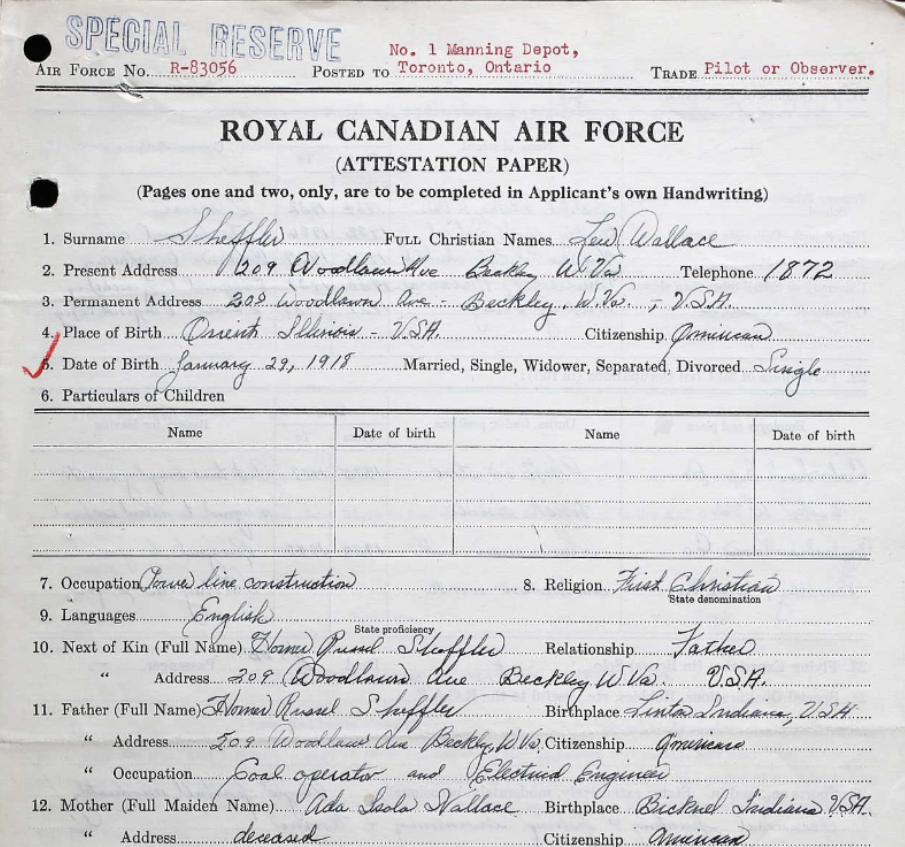 SPECIAL RESERVE
No. 1 Manning Depot,
AIR FORCE No. R-83056 POSTED TO Toronto, Ontario TRADE Pilot or Observer.
ROYAL CANADIAN AIR FORCE
(ATTESTATION PAPER)
(Pages one and two, only, are to be completed in Applicant's own Handwriting)
1. Surname Sheffler FULL Christian Names Lew Wallace
2. Present Address 209 Woodlawn Ave Beckley W Va Telephone 1872
3. Permanent Address 209 Woodlawn Ave - Beckley, W. Va. - U.S.A.
4. Place of Birth Orient Illinois - U.S.A. Citizenship American
5. Date of Birth January 29, 1918 Married, Single, Widower, Separated, Divorced Single
6. Particulars of Children
Name Date of birth Name Date of birth
7. Occupation Power line construction 8. Religion First Christian
State denomination
9. Languages English
State proficiency
10. Next of Kin (Full Name) Homer Russel Sheffler Relationship Father
" Address 209 Woodlawn Ave Beckley W Va. U.S.A.
11. Father (Full Name) Homer Russel Sheffler Birthplace Linton Indiana, U.S.A
" Address 209 Woodlawn Ave Beckly, W Va. Citizenship American
" Occupation Coal operator and Electrical Engineer
12. Mother (Full Maiden Name) Ada Wallace Birthplace Bicknel Indiana U.S.A.
" Address deceased Citizenship American